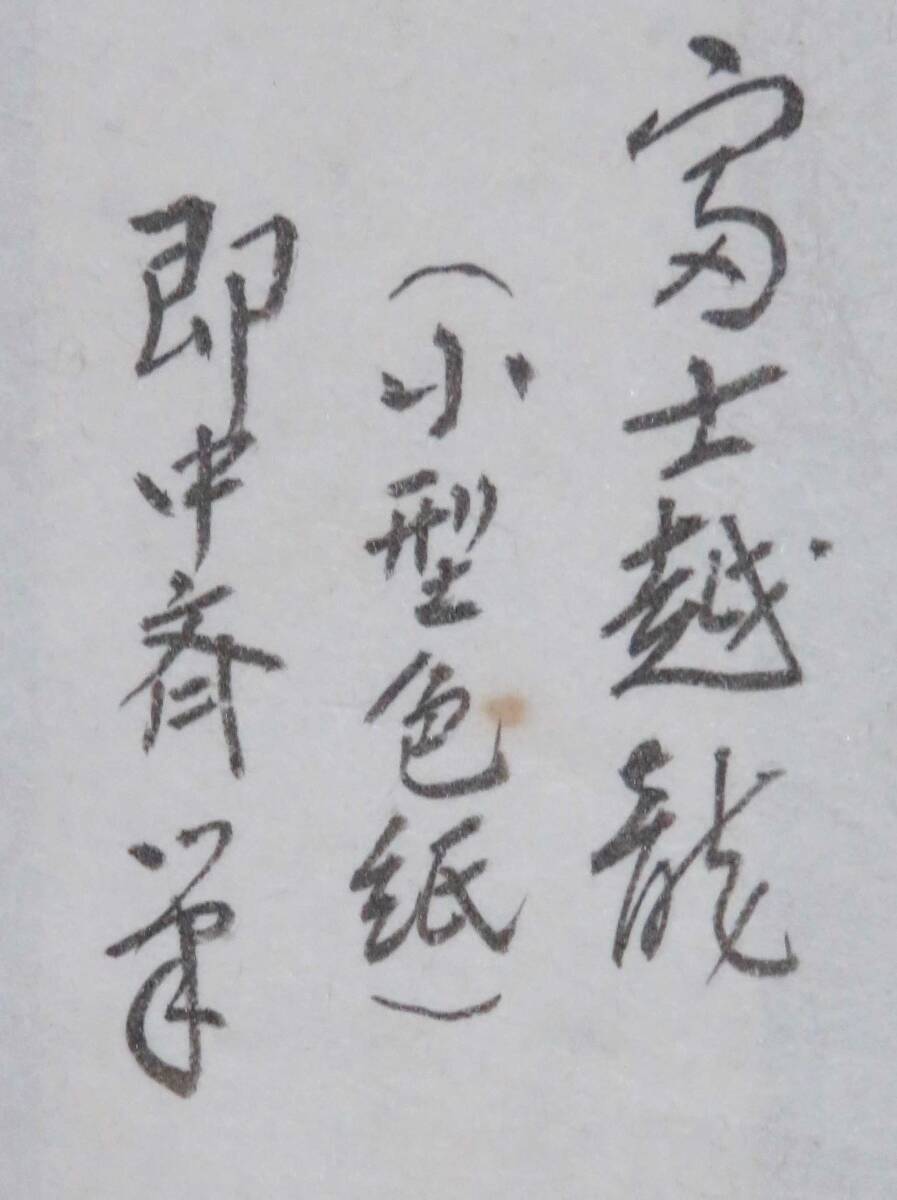 富士越龍
（小型色紙）
即中斉筆